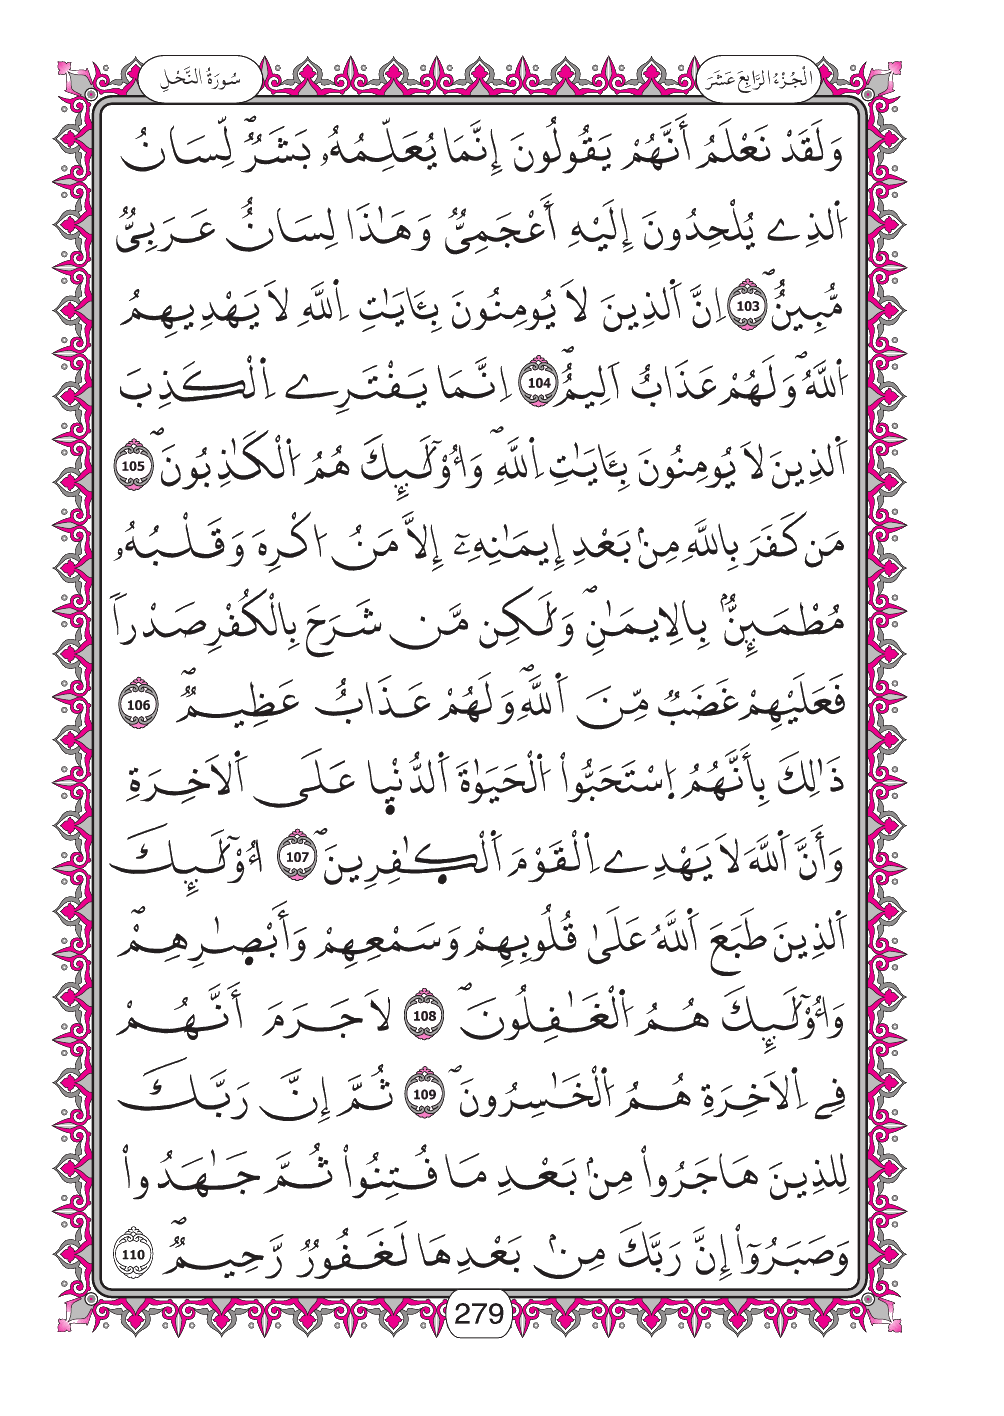 الْجُزْءُ الرَّابِعَ عَشَرَ
سُورَةُ النَّحْلِ
وَلَقَدْ نَعْلَمُ أَنَّهُمْ يَقُولُونَ إِنَّمَا يُعَلِّمُهُۥ بَشَرٌۖ لِّسَانُ
اُ۬لذِے يُلْحِدُونَ إِلَيْهِ أَعْجَمِيٌّ وَهَٰذَا لِسَانٌ عَرَبِيٌّ
مُّبِينٌۖ 103 اِنَّ اَ۬لذِينَ لَا يُومِنُونَ بِـَٔايَٰتِ اِ۬للَّهِ لَا يَهْدِيهِمُ
اُ۬للَّهُۖ وَلَهُمْ عَذَابٌ اَلِيمٌۖ 104 اِنَّمَا يَفْتَرِے اِ۬لْكَذِبَ
اَ۬لذِينَ لَا يُومِنُونَ بِـَٔايَٰتِ اِ۬للَّهِۖ وَأُوْلَٰٓئِكَ هُمُ اُ۬لْكَٰذِبُونَۖ 105
مَن كَفَرَ بِاللَّهِ مِنۢ بَعْدِ إِيمَٰنِهِۦٓ إِلَّا مَنُ ا۟كْرِهَ وَقَلْبُهُۥ
مُطْمَئِنٌّۢ بِالِايمَٰنِۖ وَلَٰكِن مَّن شَرَحَ بِالْكُفْرِ صَدْراٗ
فَعَلَيْهِمْ غَضَبٌ مِّنَ اَ۬للَّهِۖ وَلَهُمْ عَذَابٌ عَظِيمٌۖ 106
ذَٰلِكَ بِأَنَّهُمُ اُ۪سْتَحَبُّواْ اُ۬لْحَيَوٰةَ اَ۬لدُّنْي۪ا عَلَى اَ۬لَاخِرَةِ
وَأَنَّ اَ۬للَّهَ لَا يَهْدِے اِ۬لْقَوْمَ اَ۬لْكٰ۪فِرِينَۖ 107 أُوْلَٰٓئِكَ
اَ۬لذِينَ طَبَعَ اَ۬للَّهُ عَلَىٰ قُلُوبِهِمْ وَسَمْعِهِمْ وَأَبْصٰ۪رِهِمْۖ
وَأُوْلَٰٓئِكَ هُمُ اُ۬لْغَٰفِلُونَۖ 108 لَا جَرَمَ أَنَّهُمْ
فِے اِ۬لَاخِرَةِ هُمُ اُ۬لْخَٰسِرُونَۖ 109 ثُمَّ إِنَّ رَبَّكَ
لِلذِينَ هَاجَرُواْ مِنۢ بَعْدِ مَا فُتِنُواْ ثُمَّ جَٰهَدُواْ
وَصَبَرُوٓاْ إِنَّ رَبَّكَ مِنۢ بَعْدِهَا لَغَفُورٌ رَّحِيمٌۖ 110
279